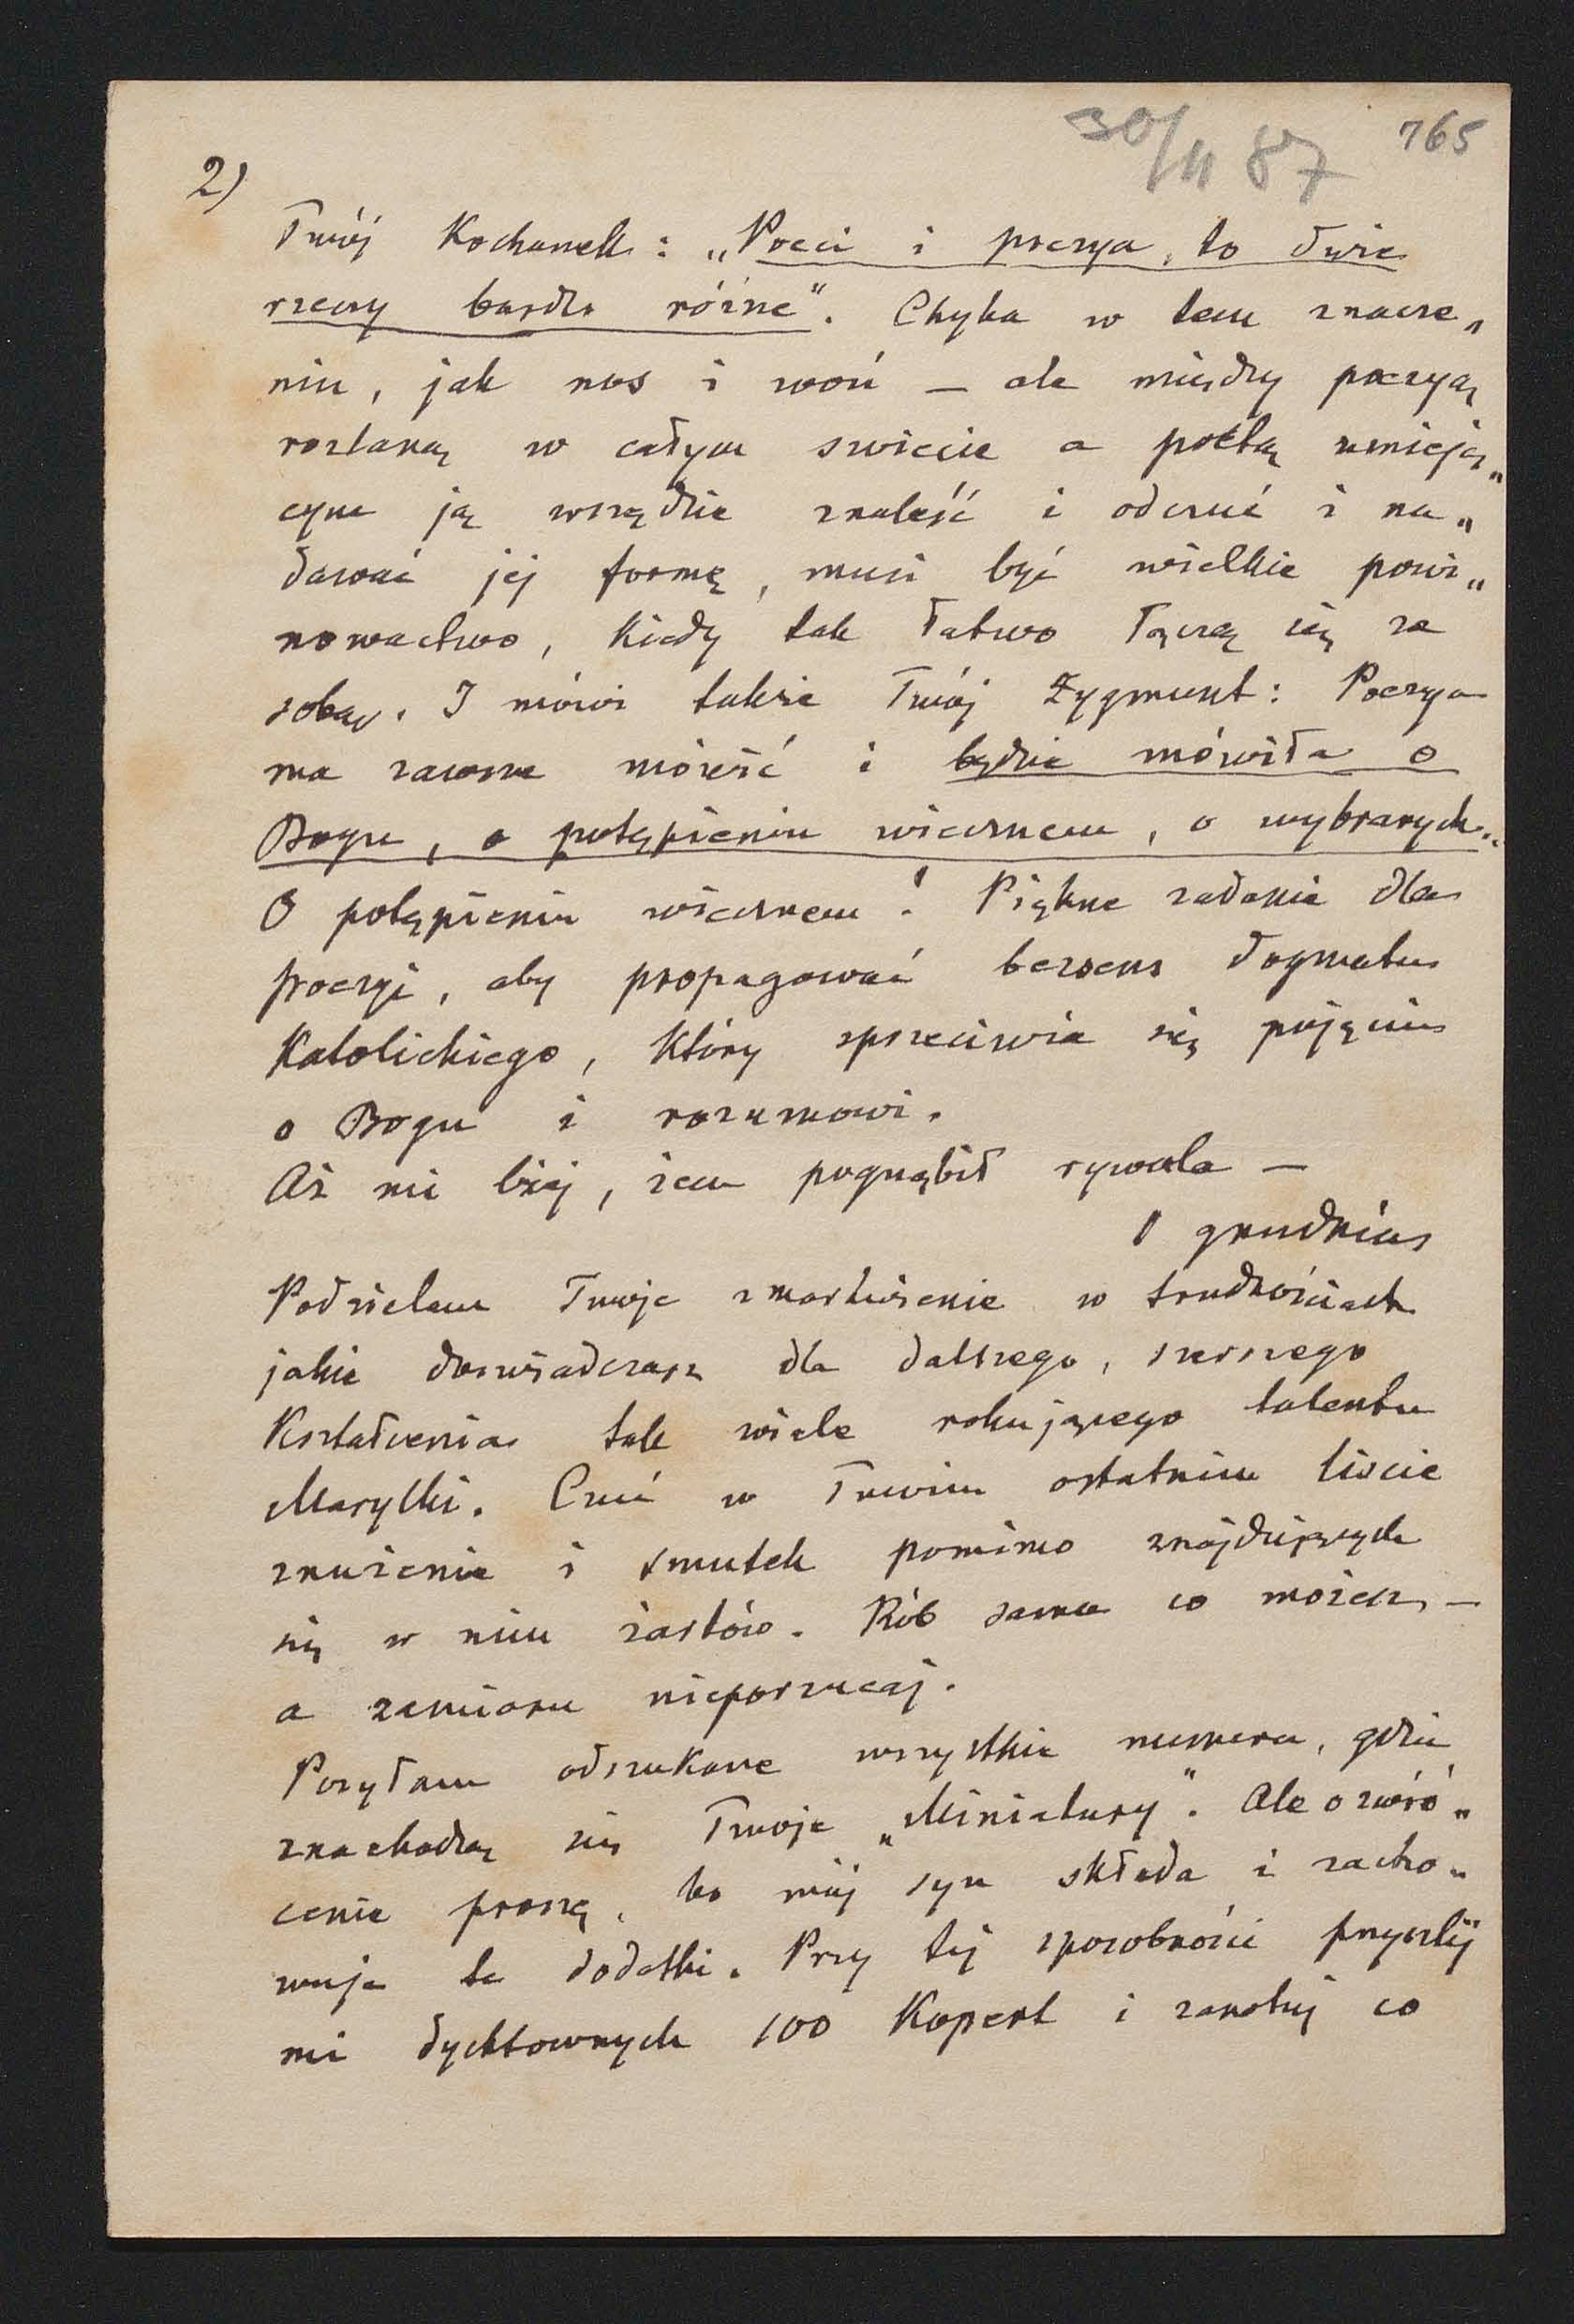 30/11 87 765
2)
Twój Kochanek: „Poeci i poezya, to dwie
rzeczy bardzo różne". Chyba w tem znacze„
niu, jak nos i woń — ale między poezyą
rozlaną w całym swiecie a poetą umieją„
cym ją wszędzie znaleść i odczuć i na„
dawać jej formę, musi być wielkie powi„
nowactwo, kiedy tak łatwo łączą się ze
sobą. I mówi także Twój Zygmunt: Poezya
ma zawsze mówić i będzie mówiła o
Bogu, o potępieniu wiecznem, o wybranych..
O potępieniu wiecznem! Piękne zadanie dla
poezyi, aby propagować bezsens dogmatu
Katolickiego, który sprzeciwia się pojęciu
o Bogu i rozumowi.
Aż mi lżej, żem pognębił rywala —
1 grudnia
Podzielam Twoje zmartwienie w trudnościach
jakie doswiadczasz dla dalszego, szerszego
Kształcenia tak wiele rokującego talentu
Marylki. Czuć w Twoim ostatnim liscie
znużenie i smutek pomimo znajdujących
się w nim żartów. Rób sama co możesz —
a zamiaru nieporzucaj.
Posyłam odszukane wszystkie numera, gdzie
znachodzą się Twoje „Miniatury". Ale o zwró„
cenie proszę, bo mój syn składa i zacho„
wuje te dodatki. Przy tej sposobności przyszlij
mi dychtownych 100 Kopert i zanotuj co